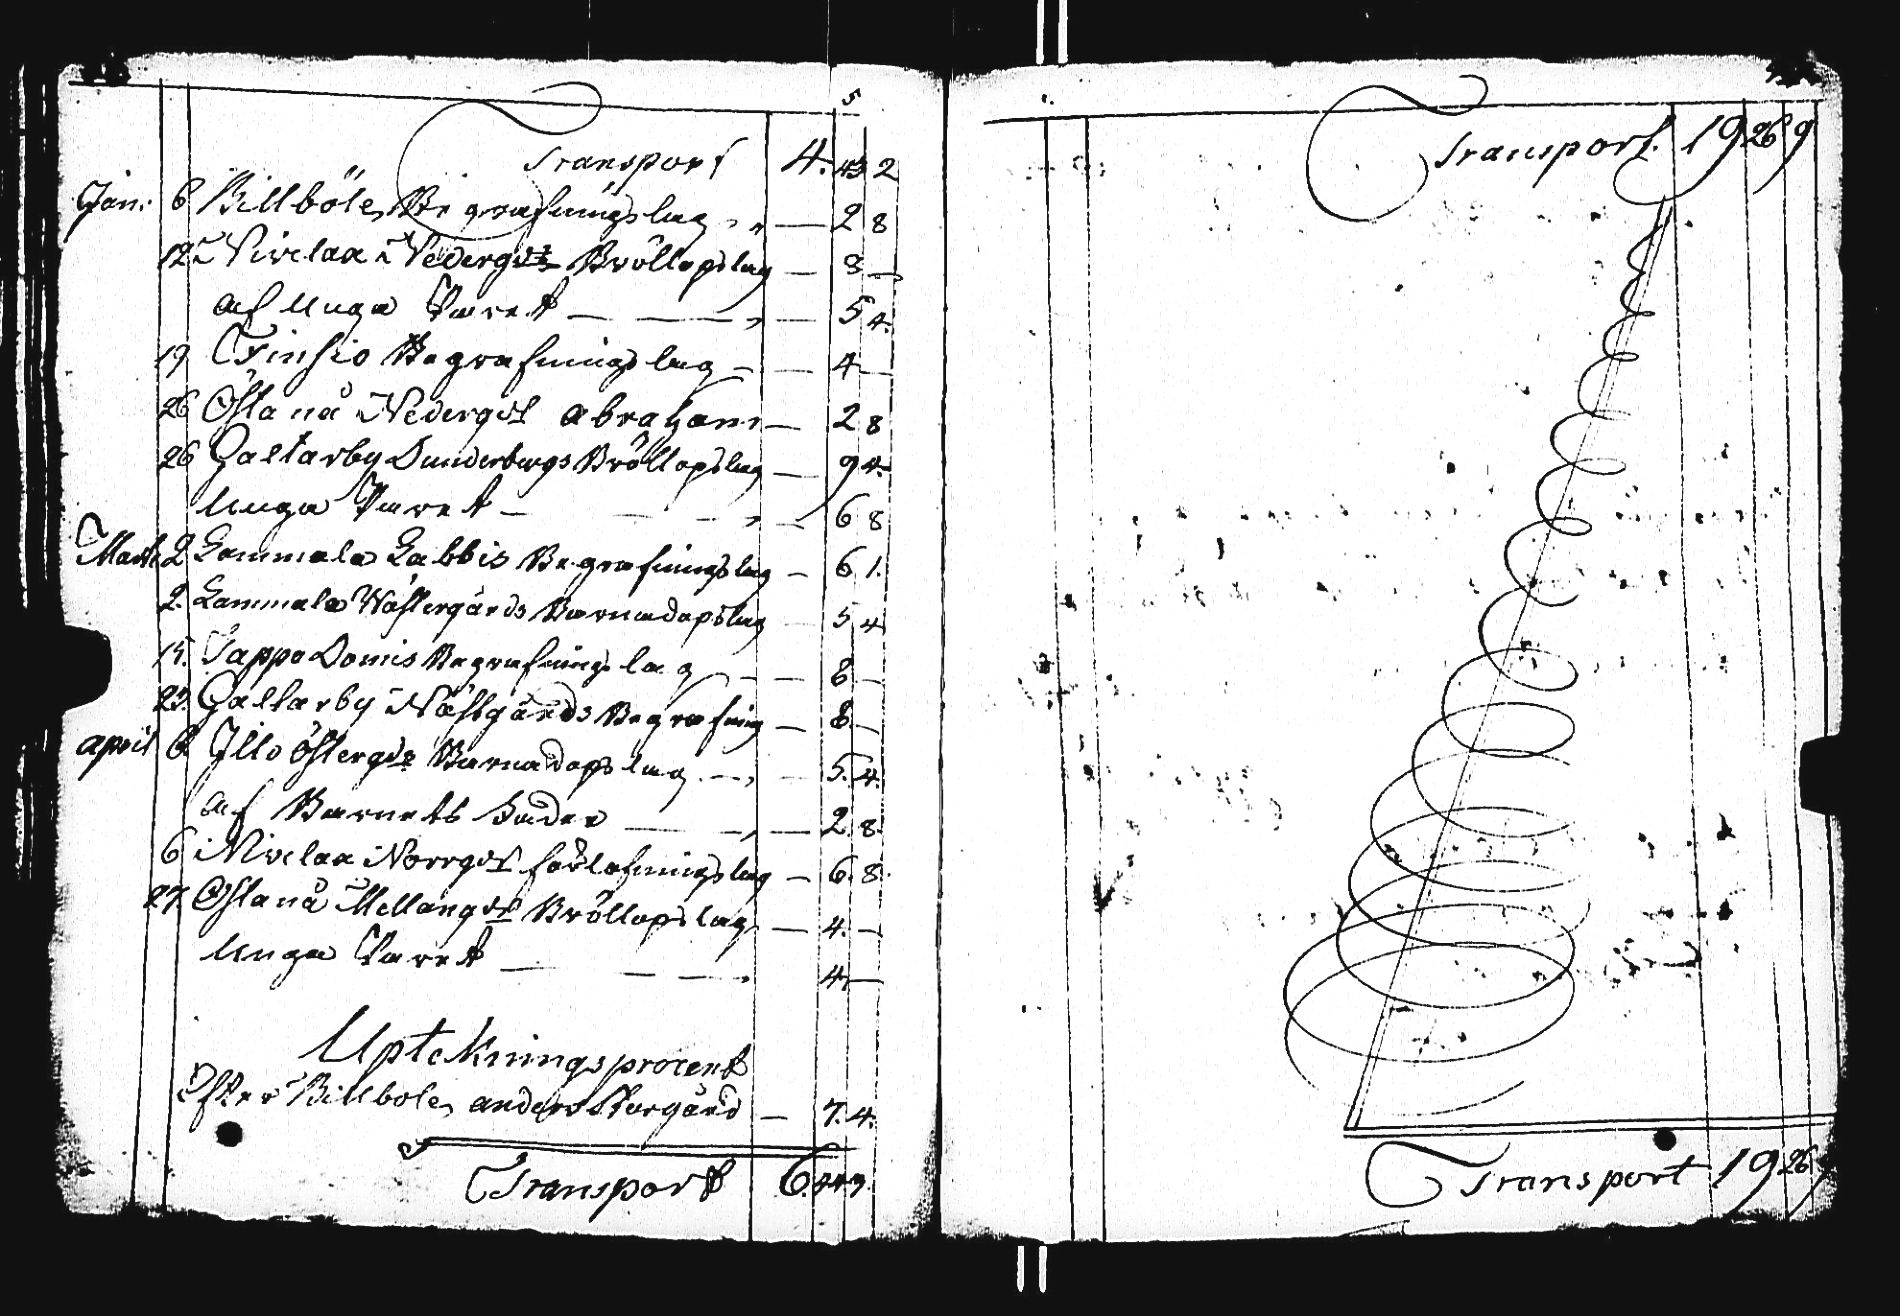 5
Transport 4. 43 2
Jan: 6 Billböle Begrafningslag „ — 2 8
12 Nivelax Nedergds Bröllopslag — 8 —
af Unga Paret — — „ — 5 4.
19 Finsio Begrafningslag — — 4 —
26 Östanå Nedergds Abraham — 2 8
26 Galtarby Dunderbergs Bröllopslag — 9 4.
Unga Paret — — „ — 6 8
Marti 2 Lammala Labbis Begrafningslag — 6 1.
2. Lammala Wästergårds Barnadopslag — 5 4
15. Jappo Domis Begrafningslag — — 8 —
23. Galtarby Nästgårds Begrafning — 8 —
April 6 Illo Östergds Barnadopslag — „ — 5. 4.
af Barnets fader — „ — 2 8.
6 Nivelax Norrgds förlofningslag — 6. 8.
27. Östanå Mellangds Bröllopslag — 4. —
Unga Paret — — „ 4 —
Upteknings procent
Efter Billböle anders Storgård — 7. 4.
Transport 6.
Transport. 19 26 9
Transport 19 26 9